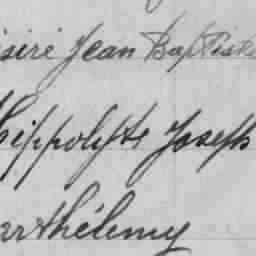 isiré Jean Baptiste
Hippolyte Joseph
arthélemy